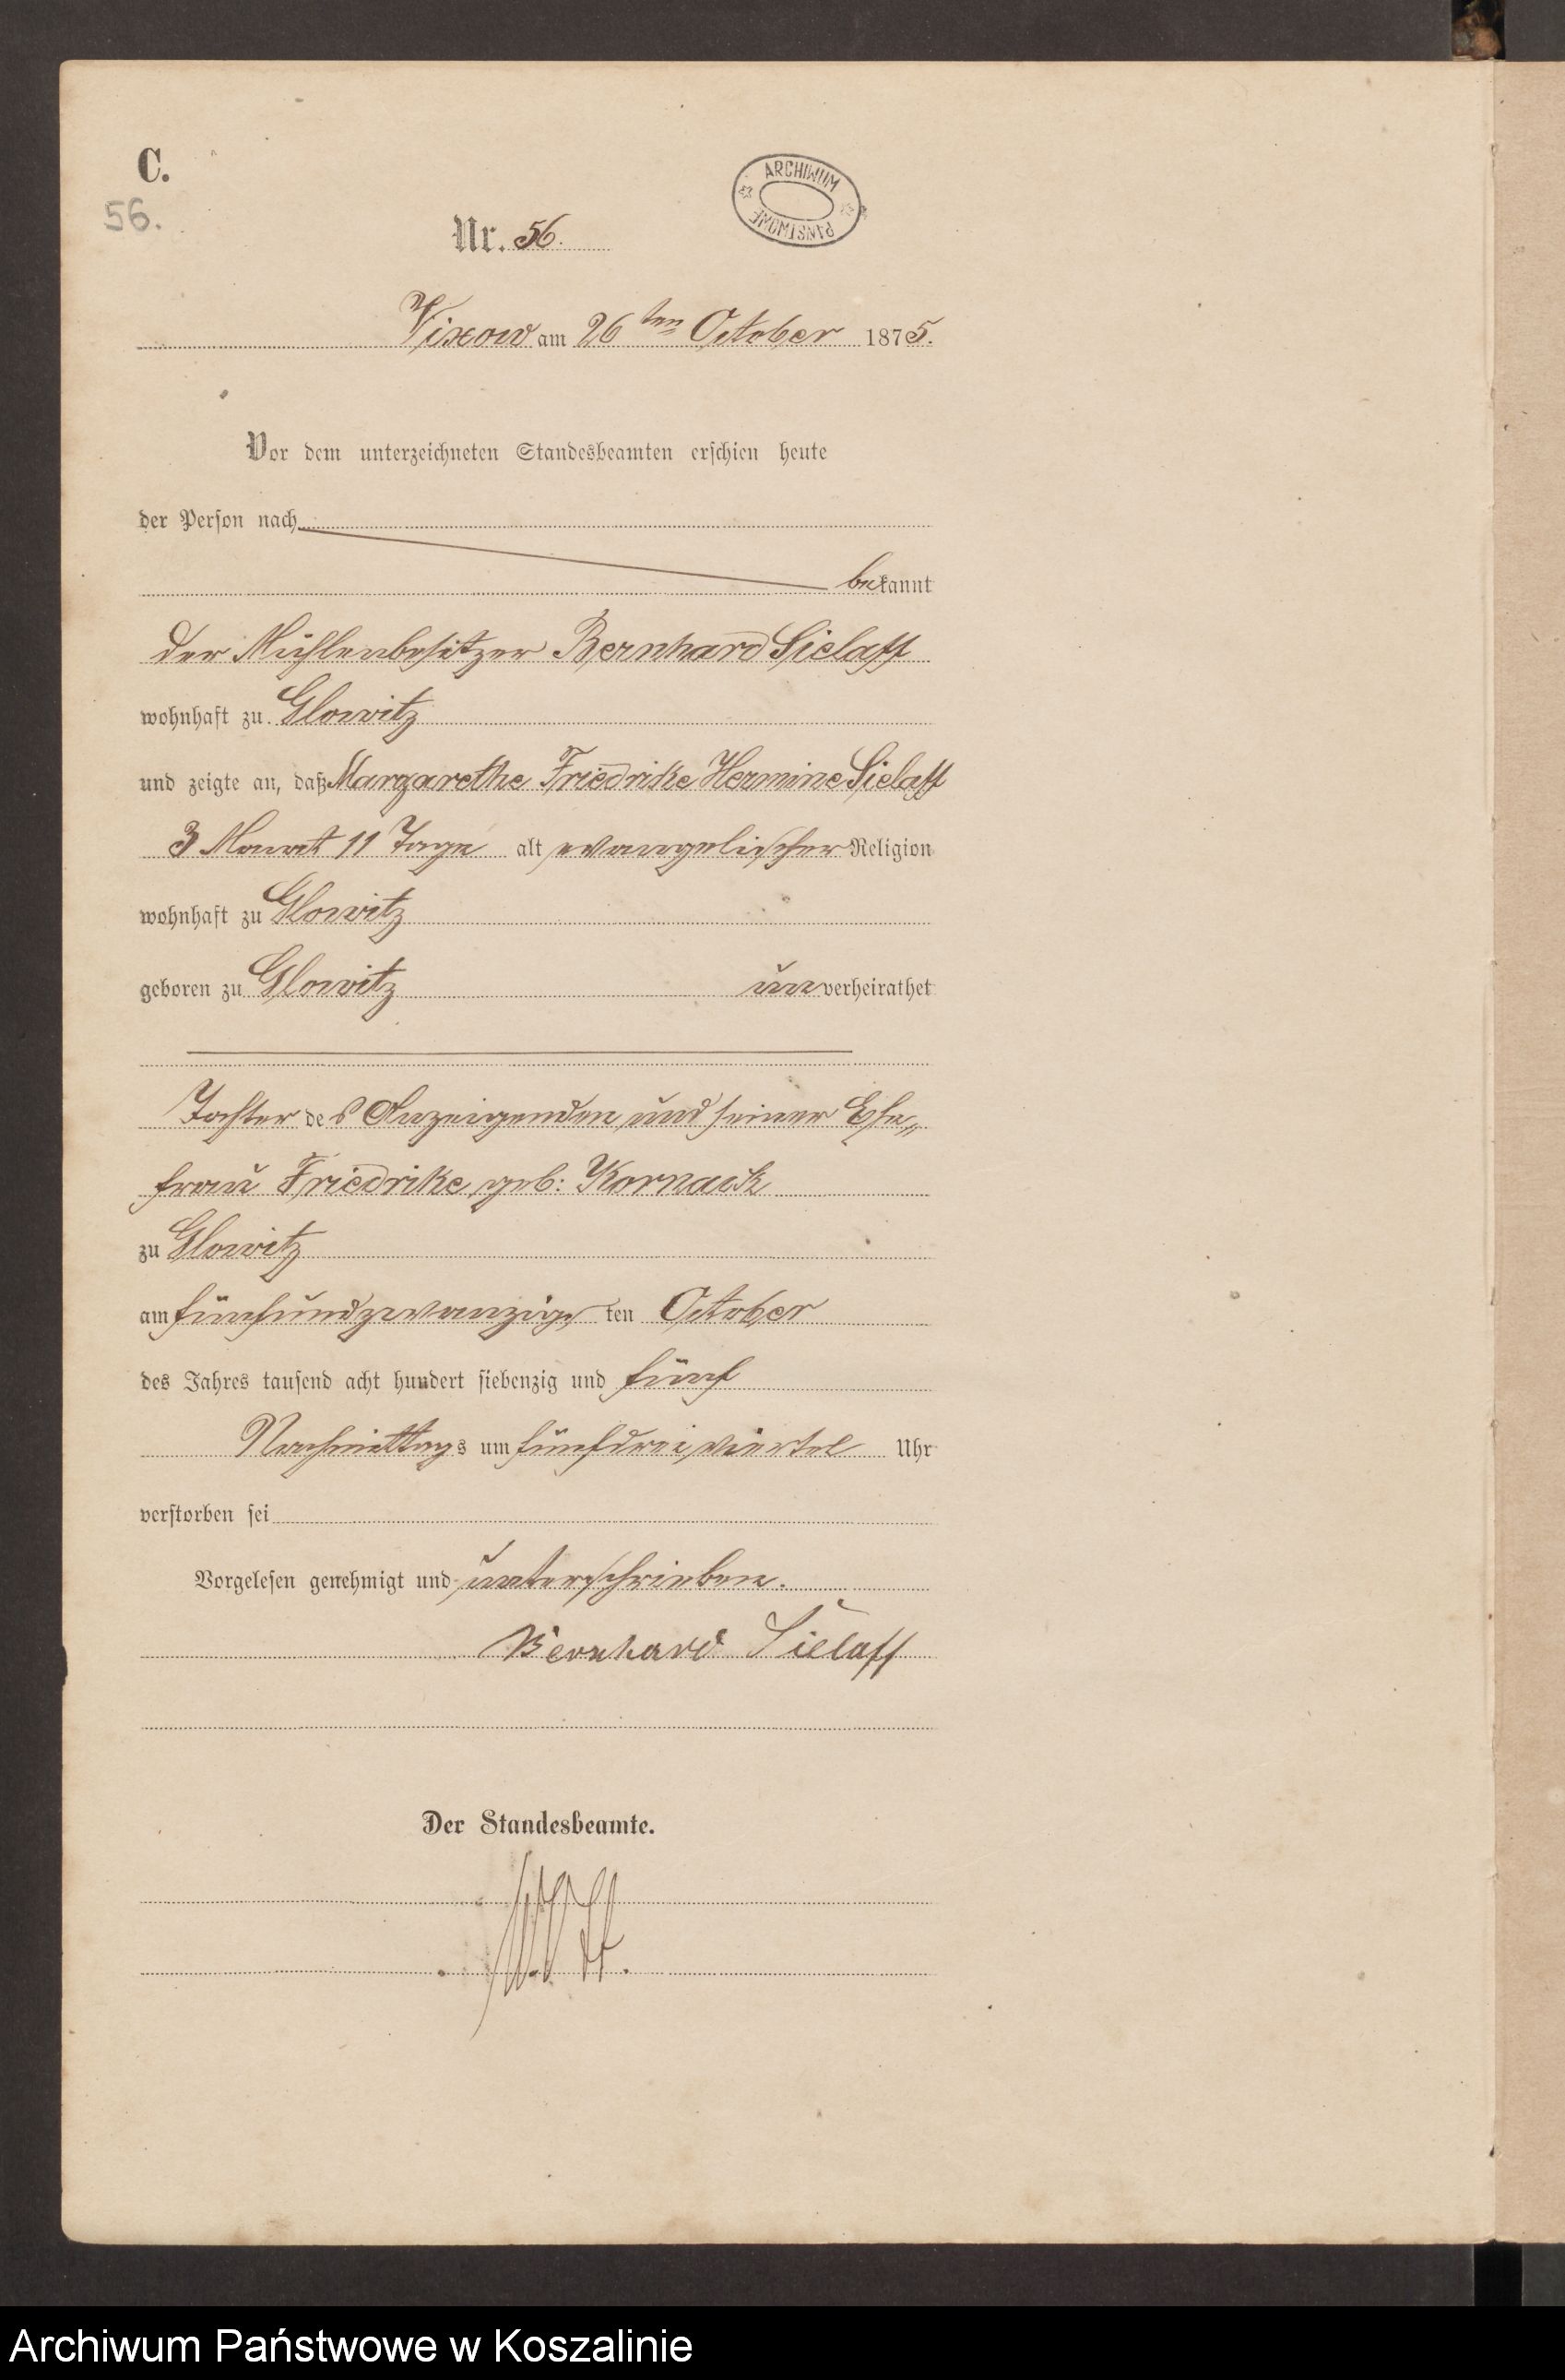 C.
56.
ARCHIWUM PAŃSTWOWE
Nr. 56.
Vixow am 26ten October 1875.
Vor dem unterzeichneten Standesbeamten erschien heute
der Person nach
bekannt
der Mühlenbesitzer Bernhard Sielaff
wohnhaft zu Glowitz
und zeigte an, daß Margarethe Friedrike Hermine Sielaff
3 Monat 11 Tage alt evangelischer Religion
wohnhaft zu Glowitz
geboren zu Glowitz unverheirathet
Tochter des Anzeigenden und seiner Ehe„
frau Friedrike geb: Kornack
zu Glowitz
am fünfundzwanzigsten October
des Jahres tausend acht hundert siebenzig und fünf
Nachmittags um fünfdreiviertel Uhr
verstorben sei
Vorgelesen genehmigt und unterschrieben.
Bernhard Sielaff
Der Standesbeamte.
Archiwum Państwowe w Koszalinie